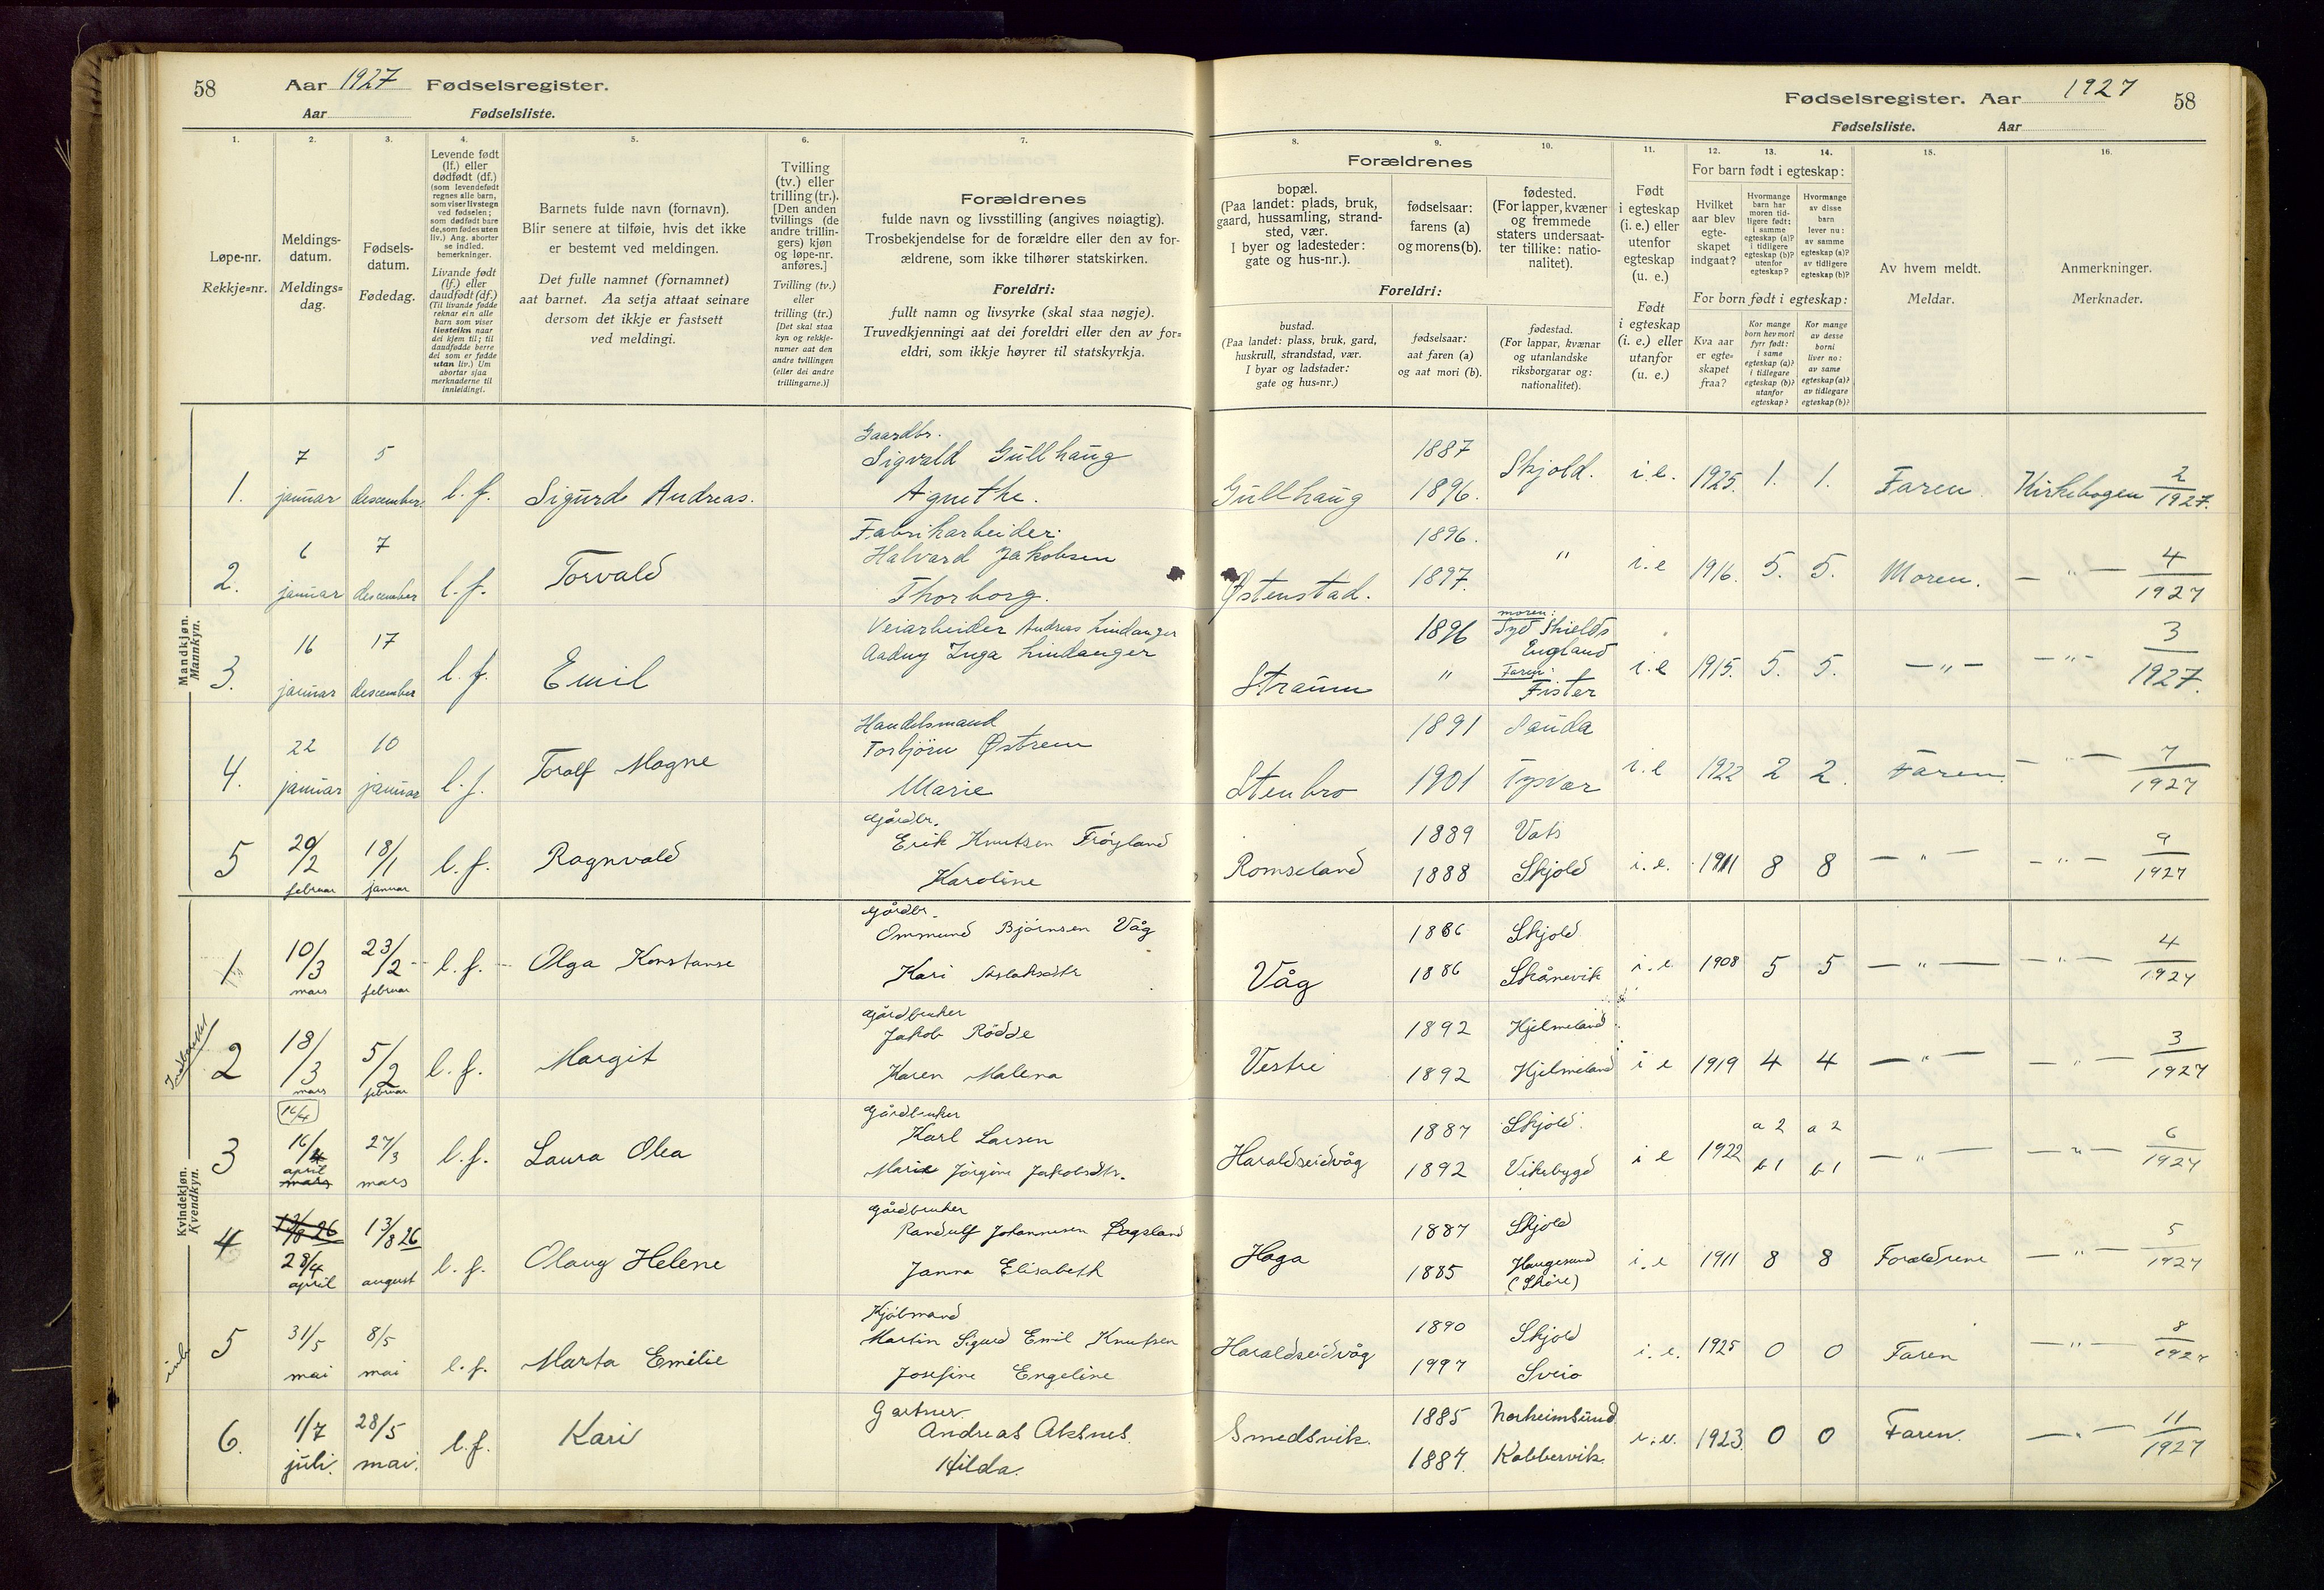 58
Aar 1927 Fødselsregister.
Aar Fødselsliste.
Fødselsregister. Aar 1927
58
Fødselsliste. Aar
1. 2. 3. 4. 5. 6. 7.
8. 9. 10. 11. 12. 13. 14. 15. 16.
Løpe-nr.
Rekkje=nr.
Meldings-
datum.
Meldings=
dag.
Fødsels-
datum.
Fødedag.
Levende født
(lf.) eller
dødfødt (df.)
(som levendefødt
regnes alle barn,
som viser livstegn
ved fødselen;
som dødfødt bare
de, som fødes uten
liv.) Ang. aborter
se indled.
bemerkninger.
Livande født
(lf.) eller
daudfødt (df.)
(Til livande fødde
reknar ein alle
born som viser
livsteikn naar
dei kjem til; til
daudfødde berre
dei som er fødde
utan liv.) Um
abortar sjaa
merknaderne til
innleidingi.
Barnets fulde navn (fornavn).
Blir senere at tilføie, hvis det ikke
er bestemt ved meldingen.
Det fulle namnet (fornamnet)
aat barnet. Aa setja attaat seinare
dersom det ikkje er fastsett
ved meldingi.
Tvilling
(tv.) eller
trilling (tr.).
[Den anden
tvillings (de
andre trillin-
gers) kjøn
og løpe-nr.
anføres.]
Tvilling (tv.)
eller
trilling (tr.)
[Det skal staa
kyn og rekkje-
numer aat den
andre tvillingen
(eller dei andre
trillingarne.)]
Forældrenes
fulde navn og livsstilling (angives nøiagtig).
Trosbekjendelse for de forældre eller den av for-
ældrene, som ikke tilhører statskirken.
Foreldri:
fullt namn og livsyrke (skal staa nøgje).
Truvedkjenningi aat dei foreldri eller den av for=
eldri, som ikkje høyrer til statskyrkja.
Forældrenes
bopæl.
(Paa landet: plads, bruk,
gaard, hussamling, strand-
sted, vær.
I byer og ladesteder:
gate og hus-nr.).
fødselsaar:
farens (a)
og morens (b).
fødested.
(For lapper, kvæner
og fremmede
staters undersaat-
ter tillike: natio-
nalitet).
Foreldri:
bustad.
(Paa landet: plass, bruk, gard,
huskrull, strandstad, vær.
I byar og ladstader:
gate og hus=nr.)
fødselsaar:
aat faren (a)
og aat mori (b).
fødestad.
(For lappar, kvænar
og utanlandske
riksborgarar og:
nationalitet).
Født
i egteskap
(i. e.) eller
utenfor
egteskap
(u. e.)
Født
i egteskap
(i. e.) eller
utanfor
(u. e.)
For barn født i egteskap:
Hvilket
aar blev
egte-
skapet
indgaat?
Hvormange
barn har
moren tid-
ligere født:
i samme
egteskap (a)?
i tidligere
egteskap (b)?
utenfor
egteskap?
Hvormange
av disse
barn
lever nu:
av samme
egteskap (a)?
av tidligere
egteskap (b)?
For born født i egteskap:
Kva aar
er egte-
skapet
fraa?
Kor mange
born hev mori
fyrr født:
i same
egteskap (a)?
i tidlegare
egteskap (b)?
utanfor
egteskap?
Kor mange
av desse
borni
liver no:
av same
egteskap (a)?
av tidlegare
egteskap (b)?
Av hvem meldt.
Meldar.
Anmerkninger.
Merknader.
Mandkjøn.
Mannkyn.
1. 7 januar 5 descember. l. f. Sigurd Andreas. Gaardbr. Sigvald Gullhaug Agnethe. Gullhaug 1887 1896. Skjold. i. e. 1925. 1. 1. Faren. Kirkebogen 2/1927.
2. 6 januar 7 descember l. f. Torvald Fabrikarbeider: Halvard Jakobsen Thorborg. Østenstad. 1896. 1897. " i. e 1916. 5. 5. Moren. — " — 4/1927
3. 16 januar 17 descember l. f. Emil Veiarbeider Andreas Lindanger Aadny Inga Lindanger Straum 1896 " moren: Syd Shields England Faren: Fister i. e 1915. 5. 5. — " — — " — 3/1927.
4. 22 januar 10 januar l. f. Toralf Magne Handelsmand Torbjörn Østrem Marie Stenbro 1891 1901 Sauda Tysvær i. e 1922 2 2. Faren. — " — 7/1927
5 20/2 februar 18/1 januar l. f. Ragnvald Gårdbr. Erik Knutsen Frøyland Karoline Romseland 1889 1888 Vats Skjold i. e. 1911 8 8 — " — — " — 9/1927
Kvindekjøn.
Kvendkyn.
1 10/3 mars 23/2 februar l. f. Olga Konstanse Gårdbr. Ommund Bjørnsen Våg Kari Aslaksdtr Våg 1886 1886 Skjold Skånevik i. e. 1908 5 5 — " — — " — 4/1927
2 18/3 mars 5/2 februar l. f. Margit Gårdbruker Jakob Rödde Karen Malena Vestre 1892 1892 Hjelmeland Hjelmeland i e 1919 4 4 — " — — " — 3/1927
3 16/4 16/4 april mars 27/3 mars l. f. Laura Olea Gårdbruker Karl Larsen Marie Jörgine Jakobsdtr. Haraldseidvåg 1887 1892 Skjold Vikebygd i e 1922 a 2 b 1 a 2 b 1 — " — — " — 6/1927
4 13/8 26 28/4 april 13/8 26 august l. f. Olaug Helene Gårdbruker Randulf Johannesen Janna Elisabeth Haga 1887 1885 Skjold Haugesund (Skåre) i. e 1911 8 8 Foreldrene — " — 5/1927
5 31/5 mai 8/5 mai l. f. Marta Emilie Kjøbmand Martin Sigurd Emil Knutsen Josefine Engeline Haraldseidvåg 1890 1997 Skjold Sveio i. e. 1925 0 0 Faren — " — 8/1927
6. 1/7 juli. 28/5 mai. l. f. Kari Gartner Andreas Aksnes. Hilda. Smedsvik. 1885 1887. Norheimsund Kobbervik. i. e. 1923. 0 0 Faren. — " — 11/1927